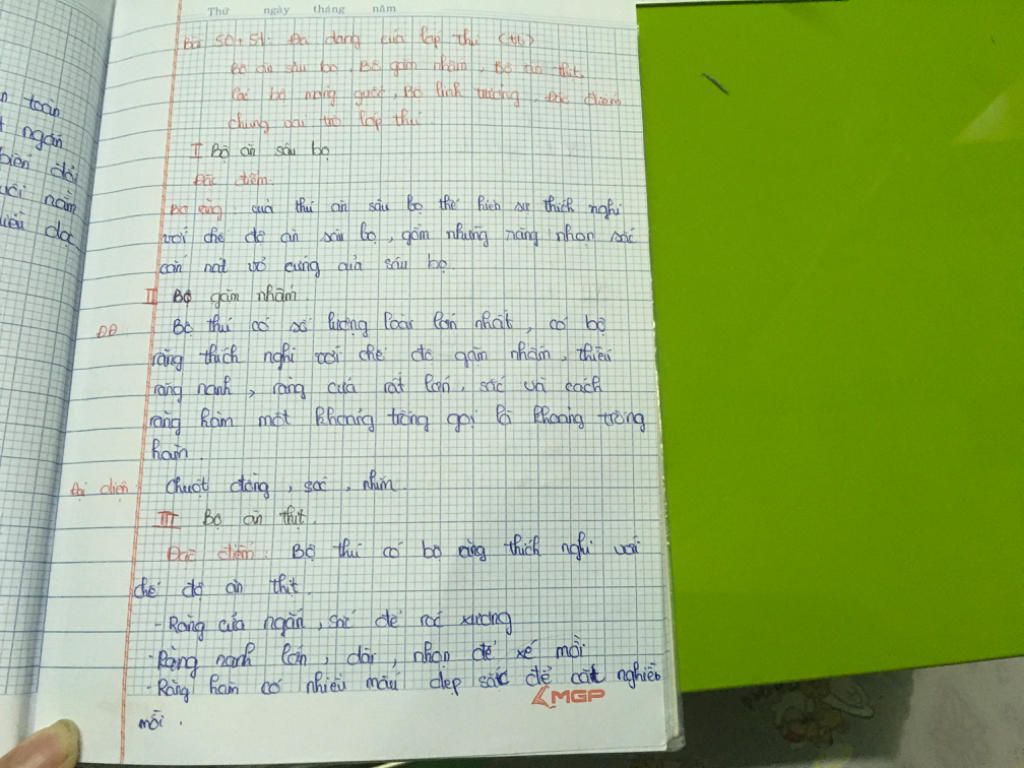 Thứ ngày tháng năm
Bài 50+51: Đa dạng của lớp thú (tt)
Bộ ăn sâu bọ, Bộ gặm nhấm, Bộ ăn thịt
Các bộ móng guốc, Bộ linh trưởng, Đặc điểm
chung vai trò lớp thú
I Bộ ăn sâu bọ
Đặc điểm:
Bộ răng: của thú ăn sâu bọ thể hiện sự thích nghi
với chế độ ăn sâu bọ, gồm những răng nhọn sắc
cắn nát vỏ cứng của sâu bọ.
II Bộ gặm nhấm.
ĐĐ Bộ thú có số lượng loài lớn nhất, có bộ
răng thích nghi với chế độ gặm nhấm, thiếu
răng nanh, răng cửa rất lớn, sắc và cách
răng hàm một khoảng trống gọi là khoảng trống
hàm.
Đại diện: Chuột đồng, sóc, nhím.
III Bộ ăn thịt.
Đặc điểm: Bộ thú có bộ răng thích nghi với
chế độ ăn thịt.
- Răng cửa ngắn, sắc để róc xương
- Răng nanh lớn, dài, nhọn để xé mồi
- Răng hàm có nhiều mấu dẹp sắc để cắt nghiền
mồi.
MGP
n toàn
ngắn
biến đổi
năm